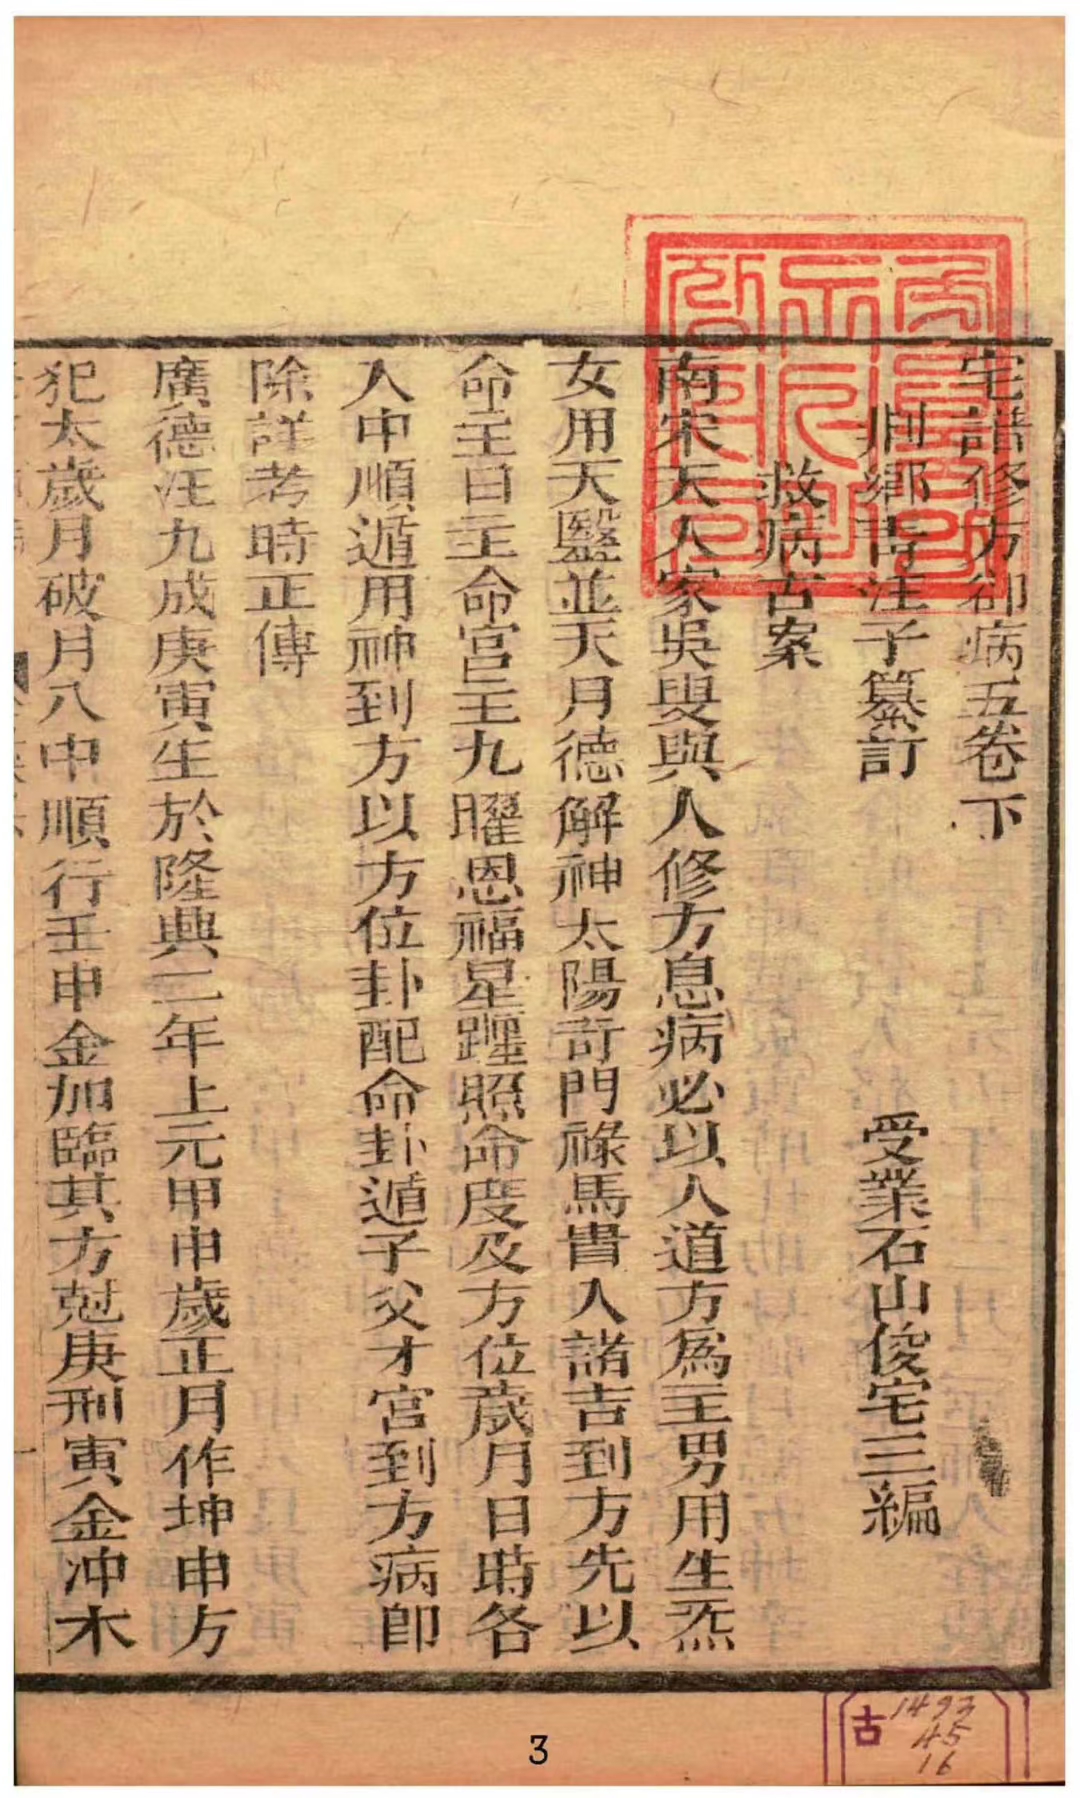 宅譜修方卻病五卷下
泗鄉青江子纂訂　受業石山俊宅三編
救病古案
南宋天人家吳叟與人修方息病必以人道方爲主男用生炁
女用天毉並天月德解神太陽奇門祿馬貴人諸吉到方先以
命主日主命宮主九曜恩福星躔照命度及方位歲月日時各
入中順遁用神到方以方位卦配命卦遁子父才官到方病卽
除詳考時正傳
廣德汪九成庚寅生於隆興二年上元甲申歲正月作坤申方
犯太歲月破月八中順行壬申金加臨其方尅庚刑寅金冲木
古
1493
45
16
3